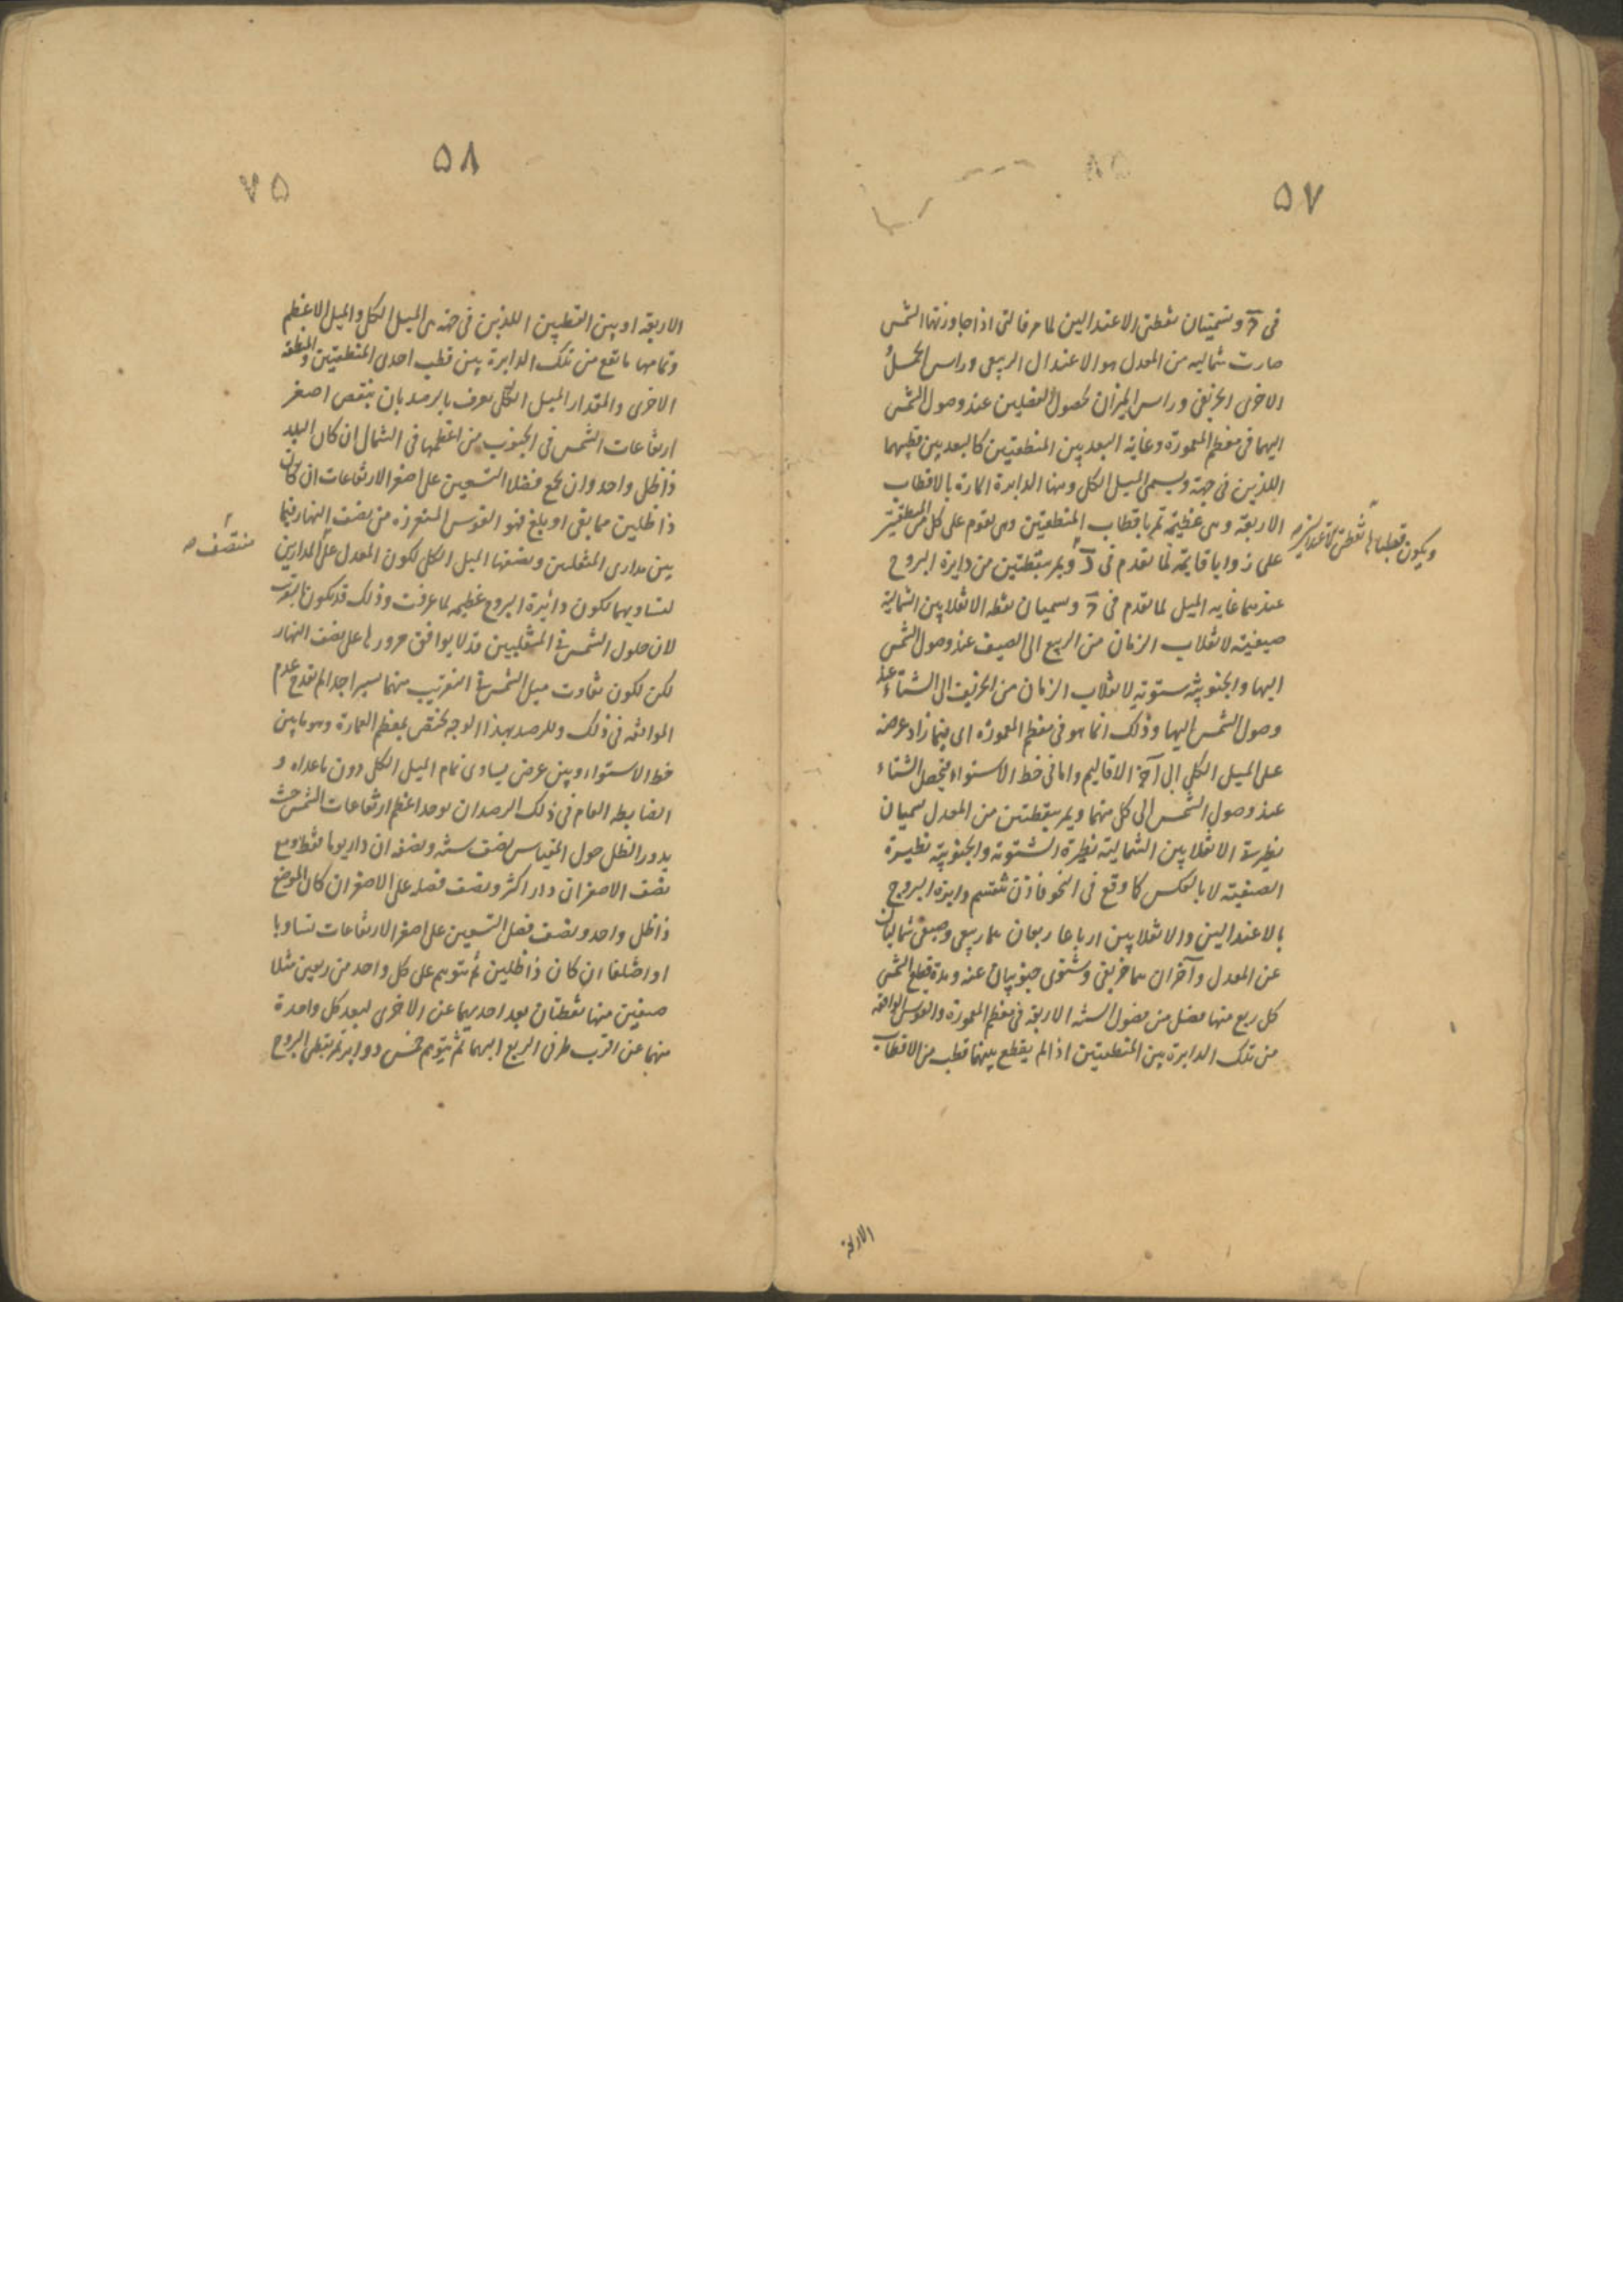 ۵۷
فى د و تسميتان نقطتى الاعتدالين لما مر فالتى اذا جاوزتها الشمس
صارت شماليه من المعدل هو الاعتدال الربيعى وراس الحمل و
الاخرى الخريفى وراس الميزان لحصول الفصلين عند وصول الشمس
اليهما فى معظم المعمورة وغاية البعد بين المنطقتين كالبعد بين قطبيهما
اللذين فى جهة ويسمى الميل الكلى ومنها الدايرة المارة بالاقطاب
الاربعة وهى عظيمة تمر باقطاب المنطقتين وهى تقوم على كل من المنطقتين
ويكون قطباها نقطتى الاعتدالين
على زوايا قايمة لما تقدم فى د ويمر بنقطتين من دايرة البروج
عندهما غايه الميل لما تقدم فى د وسميان نقطه الانقلابين الشمالية
صيفية لانقلاب الزمان من الربيع الى الصيف عند وصول الشمس
اليها والجنوبية ستوية لانقلاب الزمان من الخريف الى الشتاء عند
وصول الشمس اليها وذلك انما هو فى معظم المعمورة اى فيما زاد عرضه
على الميل الكلى الى آخر الاقاليم واما فى خط الاستواء فيحصل الشتاء
عند وصول الشمس الى كل منهما ويمر بنقطتين من المعدل سميان
نظيرتى الانقلابين الشمالية نظيرة الشتوية والجنوبية نظيرة
الصيفية لا بالعكس كما وقع فى النحو فاذن تنقسم دايرة البروج
بالاعتدالين والانقلابين ارباعا ربعان هما ربيعى وصيفى شماليان
عن المعدل وآخران هما خريفى وشتوى جنوبيان عنه ومدة قطع الشمس
كل ربع منها فصل من فصول السنة الاربعة فى معظم المعمورة والقوس الواقعه
من تلك الدايرة بين المنطقتين اذا لم يقطع بينهما قطب من الاقطاب
الاربعة
۵۸
۷۵
الاربعه او بين القطبين اللذين فى جهة هى الميل الكلى والميل الاعظم
وتمامها ما تقع من تلك الدايرة بين قطب احدى المنطقتين والمنطقه
الاخرى والمقدار الميل الكلى يعرف بالرصد بان ينقص اصغر
ارتفاعات الشمس فى الجنوب من اعظمها فى الشمال ان كان البلد
ذا ظل واحد وان يجمع فضلا التسعين على اصغر الارتفاعات ان كان
ذا ظلين مما بقى او بلغ فهو القوس المنفرزه من نصف النهار فيما
بين مدارى المنقلبين ونصفها الميل الكلى لكون المعدل على المدارين
منتصف
لتساويهما لكون دائرة البروج عظيمه لما عرفت وذلك قد يكون بالتقريب
لان حلول الشمس فى المنقلبين قد لا يوافق مرورها على نصف النهار
لكن لكون تفاوت ميل الشمس فى القريب منهما يسيرا جدا لم يقدح عدم
الموافقه فى ذلك وللرصد بهذا الوجه يختص بمعظم العمارة وهو ما بين
خط الاستواء وبين عرض يساوى تمام الميل الكلى دون ما عداه و
الضابطه العام فى ذلك الرصد ان يوجد اعظم ارتفاعات الشمس حيث
يدور الظل حول المقياس نصف سنه ونصفه ان دار يوما فقط ومع
نصف الاصغر ان دار اكثر ونصف فضله على الاصغر ان كان الموضع
ذا ظل واحد ونصف فضل التسعين على اصغر الارتفاعات تساويا
او اختلفا ان كان ذا ظلين ثم نتوهم على كل واحد من ربعين مثلا
صيفيين منها نقطتان بعد احديهما عن الاخرى كبعد كل واحدة
منهما عن اقرب طرفى الربع اليهما ثم نتوهم خمس دواير تمر بقطبى البروج